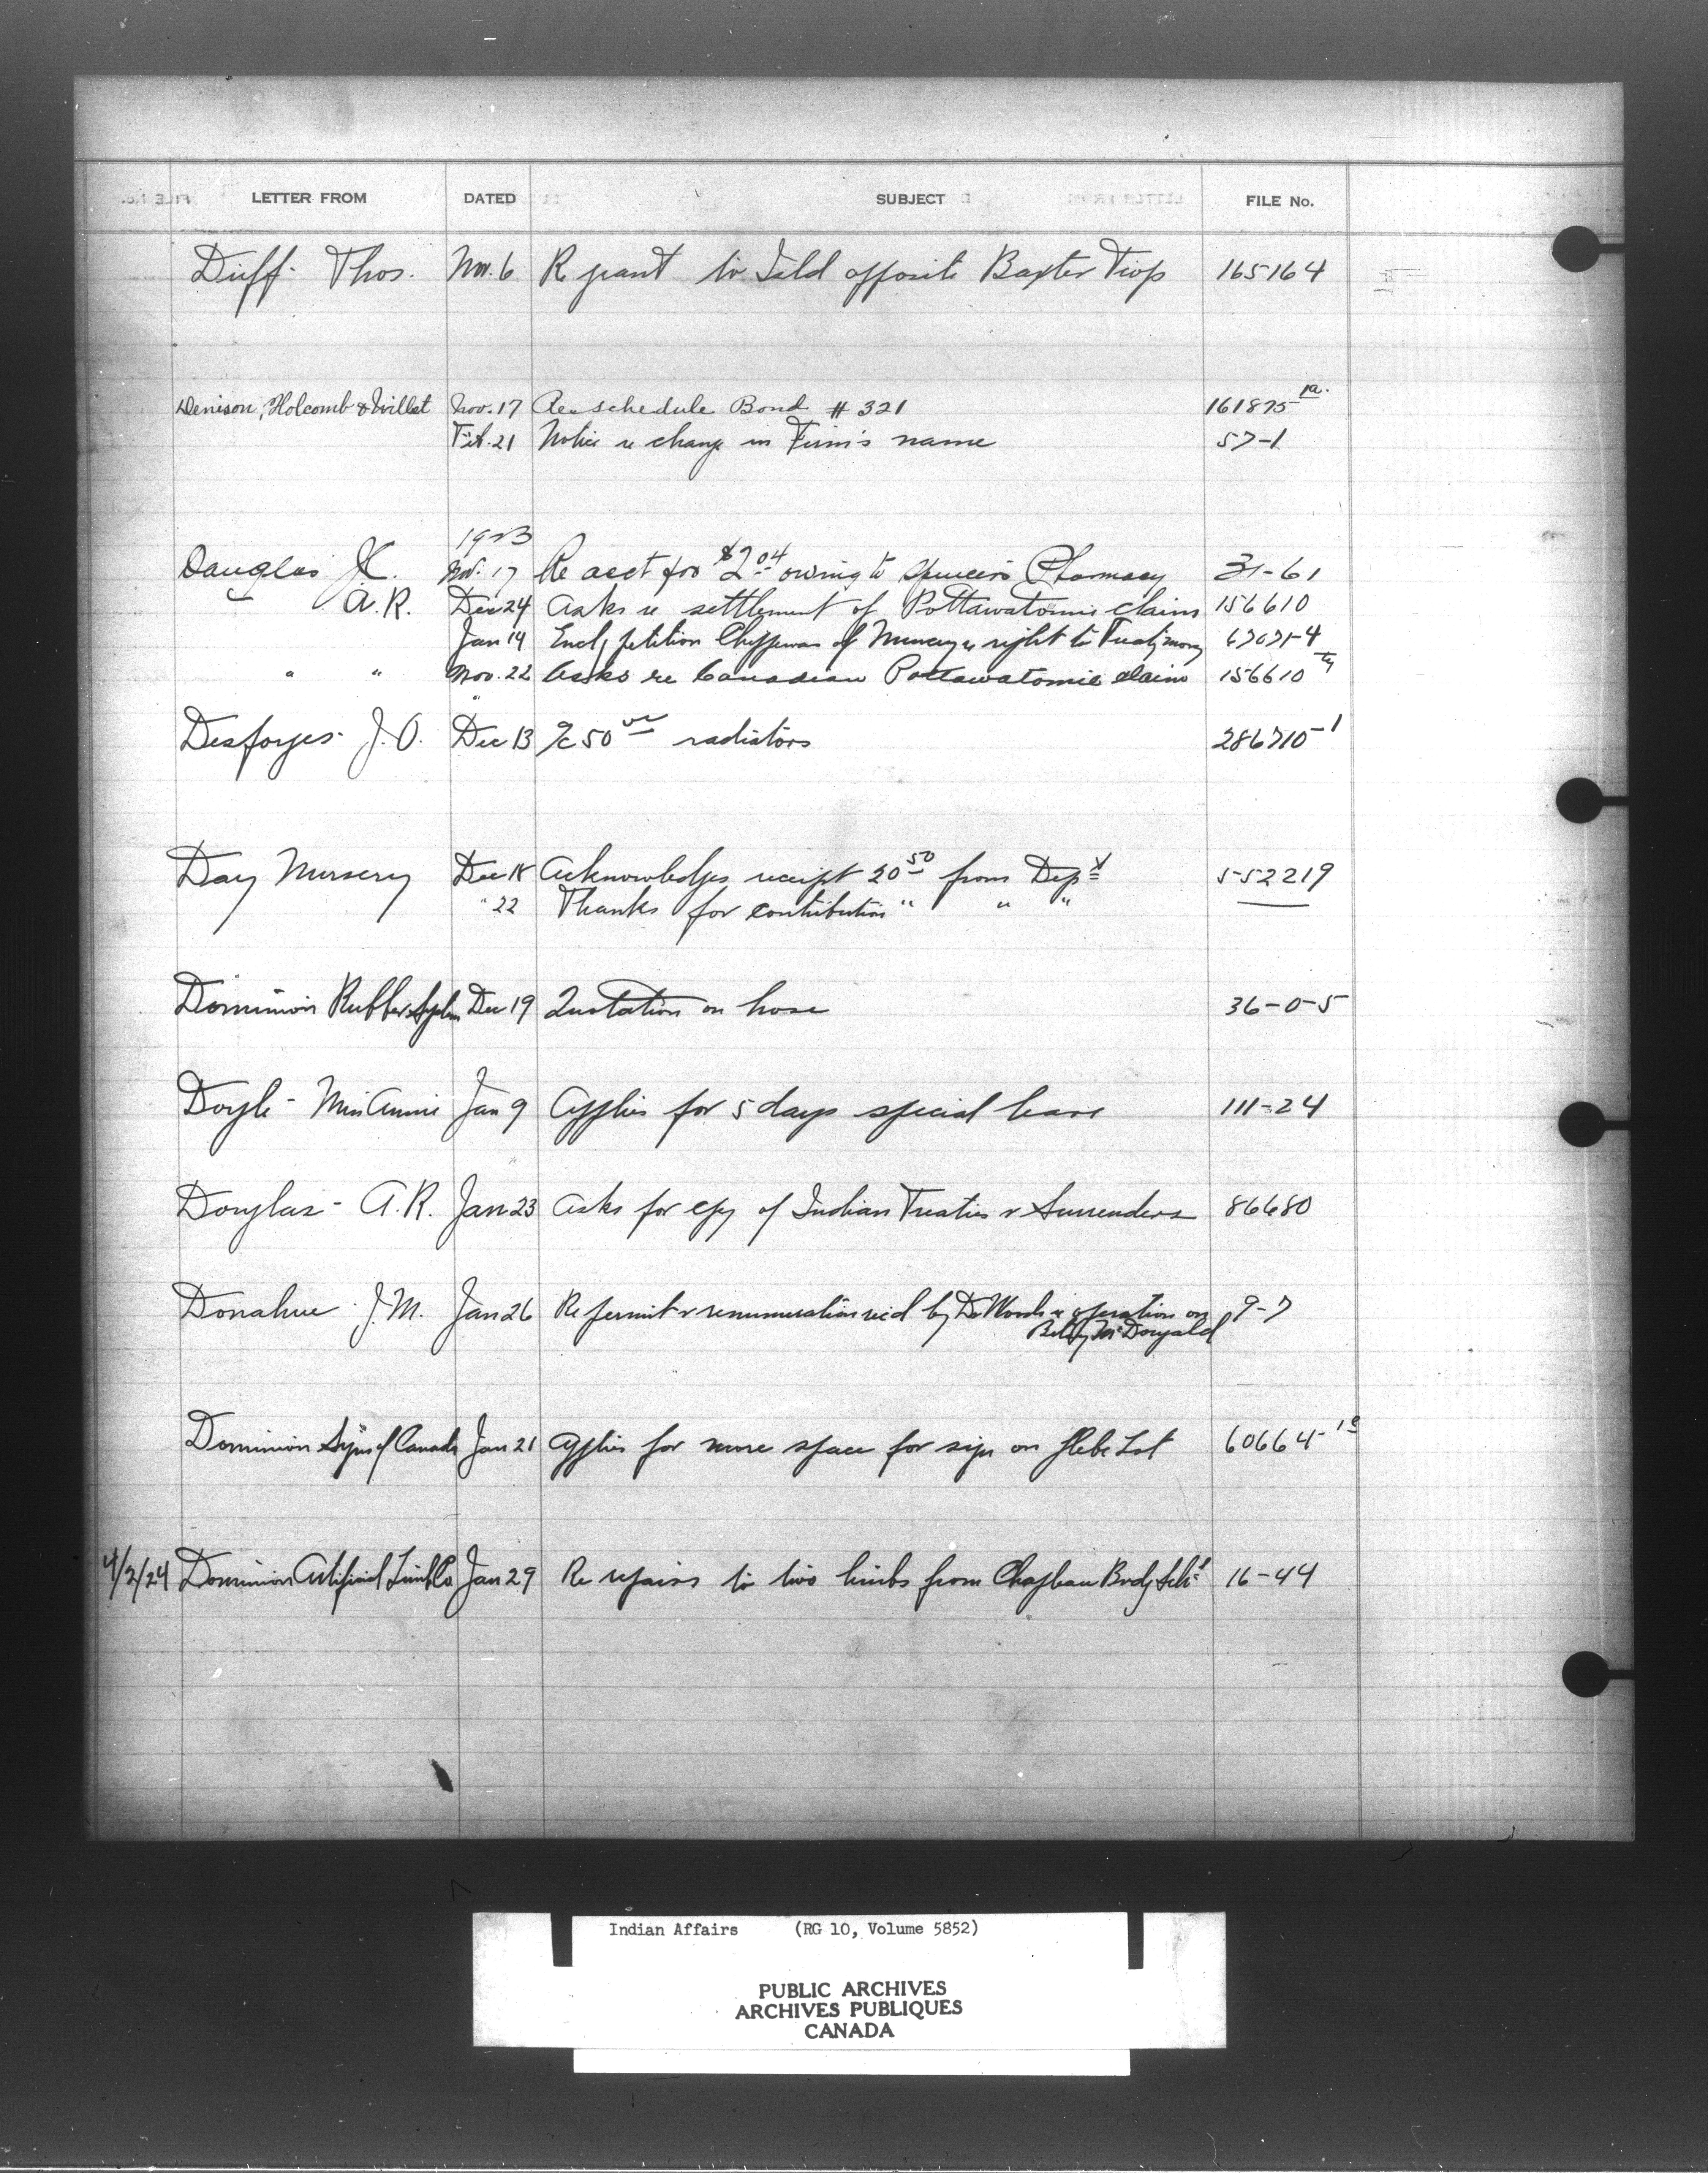 LETTER FROM DATED SUBJECT FILE No.
Duff - Thos. Nov. 6 Re grant to Isld opposite Baxter Twp 165164
Denison, Holcomb & Willet Nov. 17 Re schedule Bond # 321 161875-1a.
Feb. 21 Notice re change in Firm's name 57-1
1923
Douglas J.C. Nov. 17 Re acct for $2.04 owing to Spencer's Pharmacy 31-61
A.R. Dec 24 Asks re settlement of Pottawatomie claims 156610
Jan 14 Encl petition Chippewas of Muncey re right to Treaty money 67071-4
" " Nov. 22 Asks re Canadian Pottawatomie claims 156610
Desforges - J.O. Dec 13 50 radiators 286710-1
Day Nursery Dec 18 Acknowledges receipt 20.50 from Dept 552219
" 22 Thanks for contribution " " "
Dominion Rubber System Dec 19 Quotation on hose 36-0-5
Doyle - Miss Annie Jan 9 Applies for 5 days special leave 111-24
Douglas - A.R. Jan 23 Asks for cpy of Indian Treaties & Surrenders 86680
Donahue J.M. Jan 26 Re permit & renumeration recd by Dr Woods re operation on 9-7
Betsy McDonald
Dominion Signs of Canada Jan 21 Applies for more space for sign on Glebe Lot 60664-1
4/2/24 Dominion Artificial Limb Co Jan 29 Re repairs to two limbs from Chapleau Brdg Schl 16-44
Indian Affairs (RG 10, Volume 5852)
PUBLIC ARCHIVES
ARCHIVES PUBLIQUES
CANADA